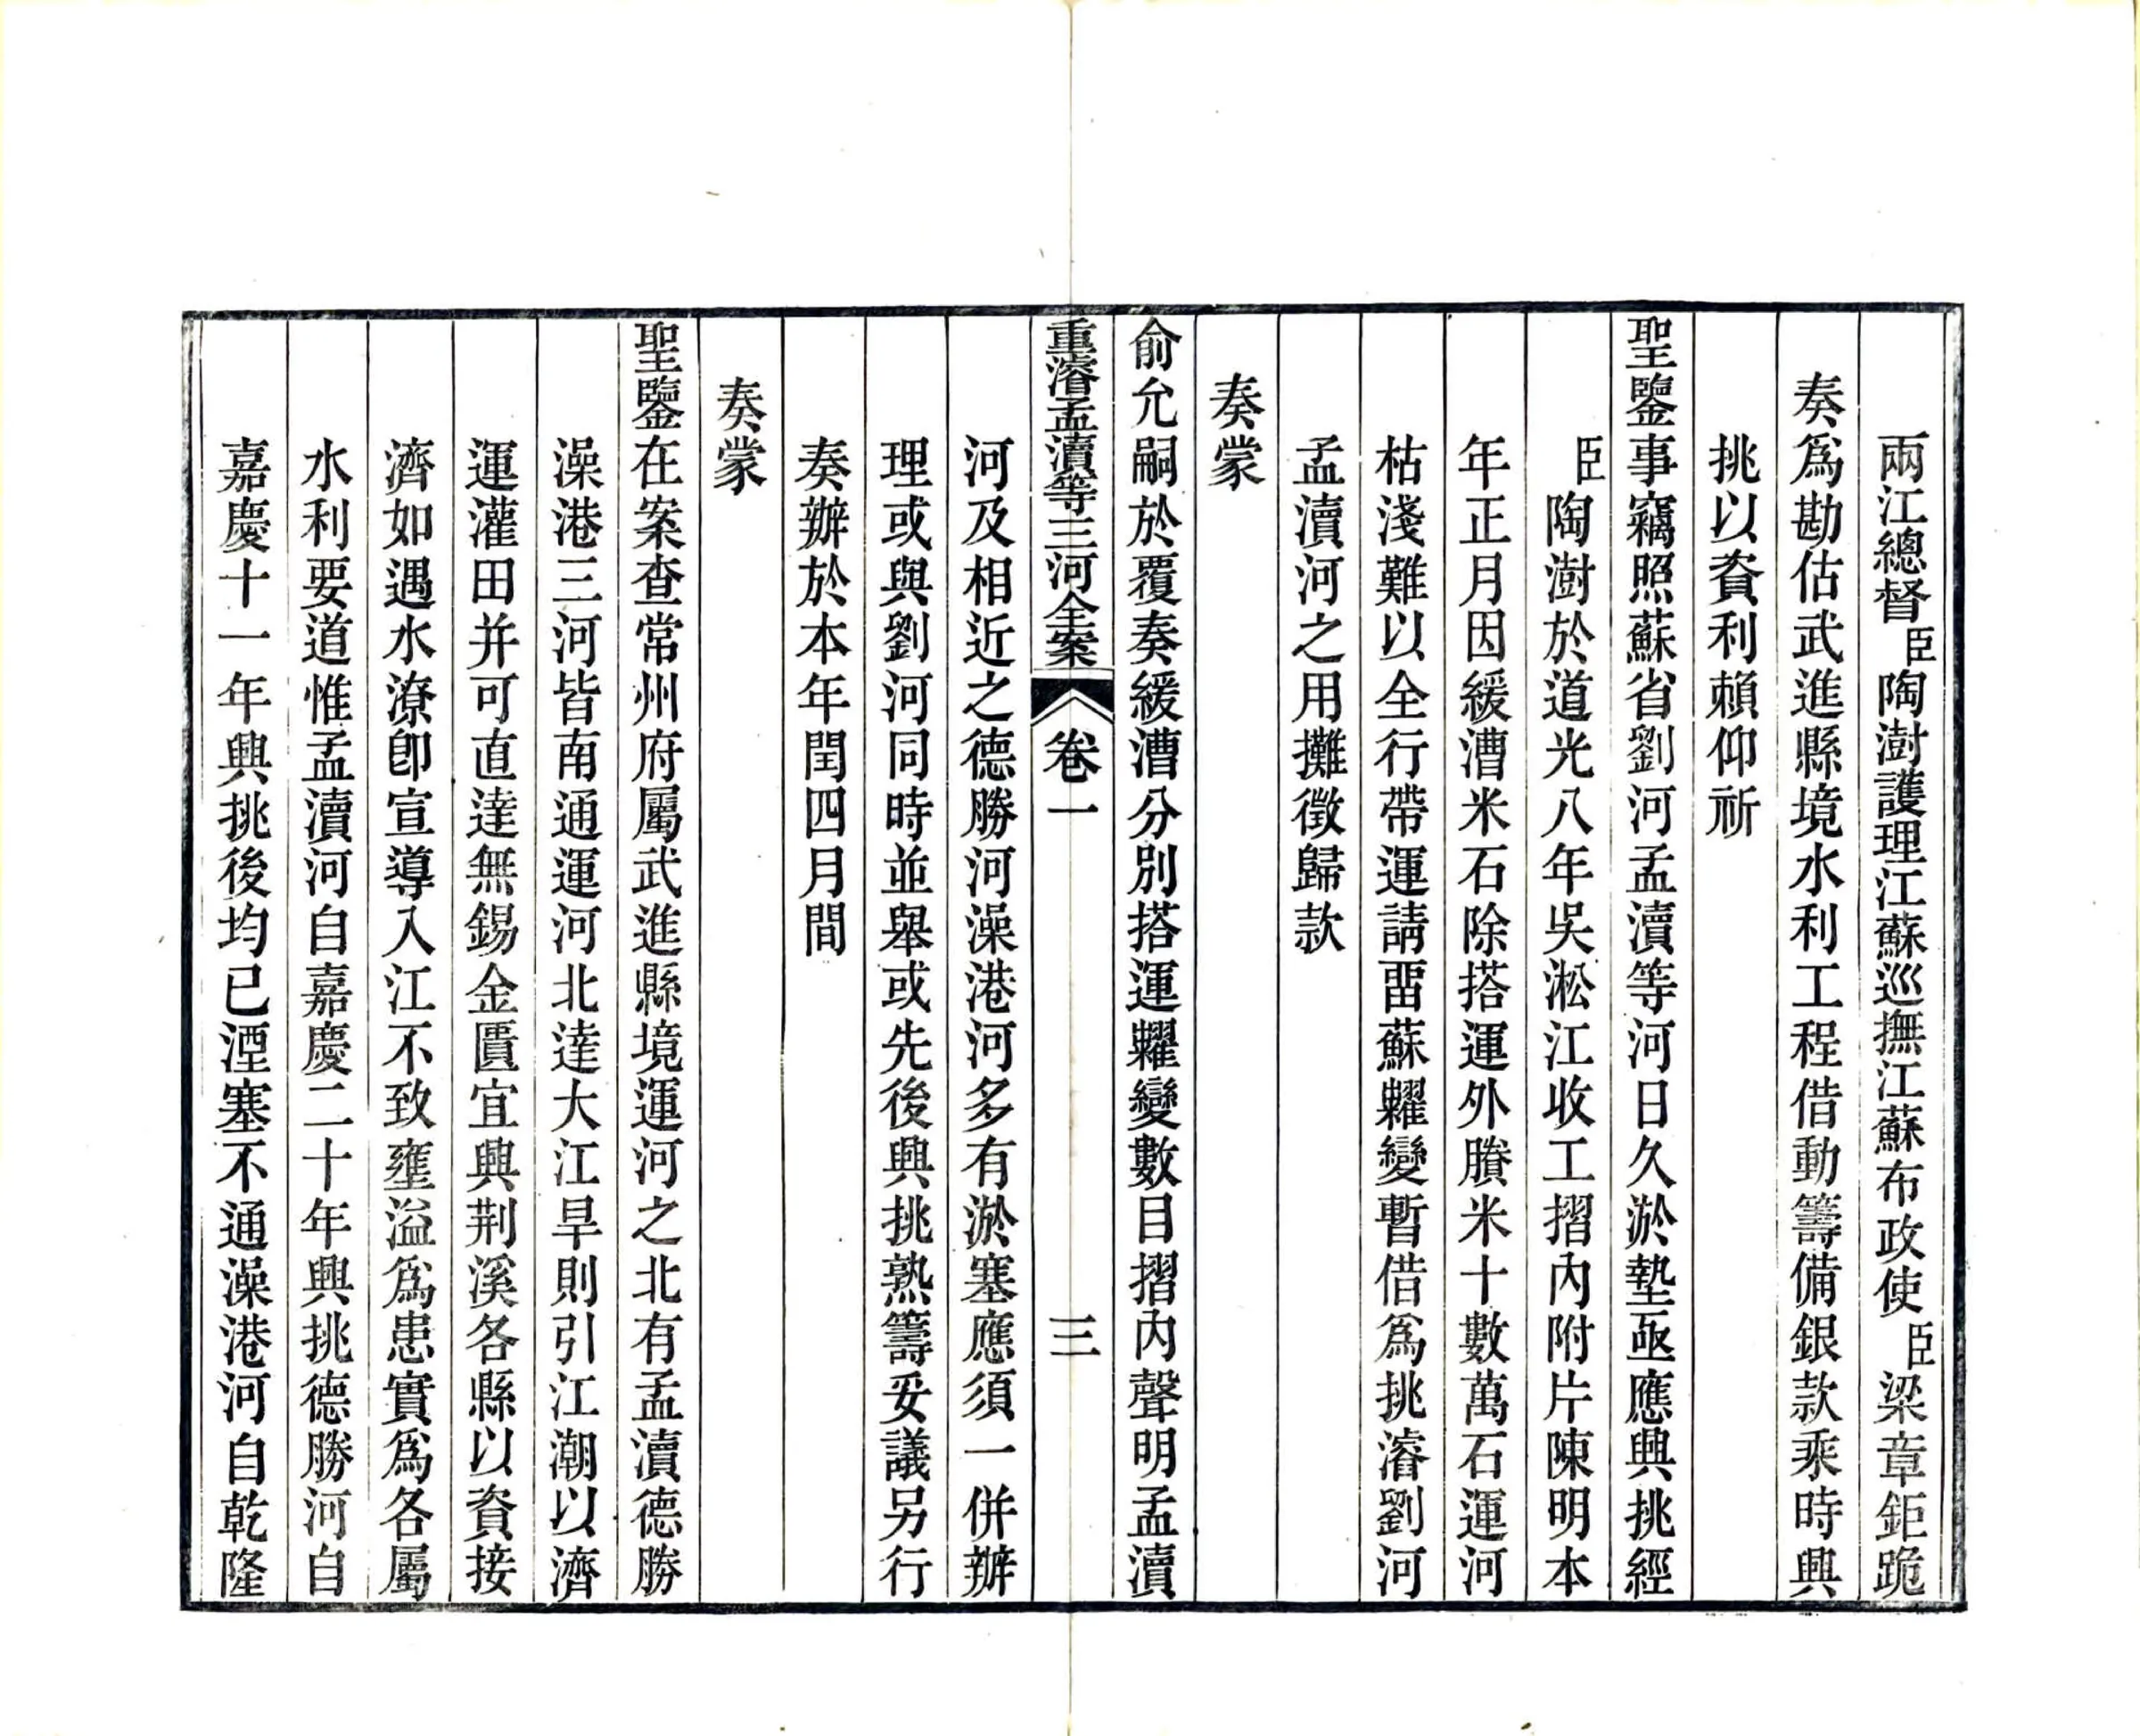 兩江總督臣陶澍護理江蘇巡撫江蘇布政使臣梁章鉅跪
奏爲勘估武進縣境水利工程借動籌備銀款乘時興
挑以資利賴仰祈
聖鑒事竊照蘇省劉河孟瀆等河日久淤墊亟應興挑經
臣陶澍於道光八年吳淞江收工摺內附片陳明本
年正月因緩漕米石除搭運外賸米十數萬石運河
枯淺難以全行帶運請畱蘇糶變暫借爲挑濬劉河
孟瀆河之用攤徵歸款
奏蒙
俞允嗣於覆奏緩漕分別搭運糶變數目摺內聲明孟瀆
重濬孟瀆等三河全案 卷一 三
河及相近之德勝河澡港河多有淤塞應須一併辦
理或與劉河同時並舉或先後興挑熟籌妥議另行
奏辦於本年閏四月間
奏蒙
聖鑒在案查常州府屬武進縣境運河之北有孟瀆德勝
澡港三河皆南通運河北達大江旱則引江潮以濟
運灌田并可直達無錫金匱宜興荆溪各縣以資接
濟如遇水潦卽宣導入江不致壅溢爲患實爲各屬
水利要道惟孟瀆河自嘉慶二十年興挑德勝河自
嘉慶十一年興挑後均已湮塞不通澡港河自乾隆